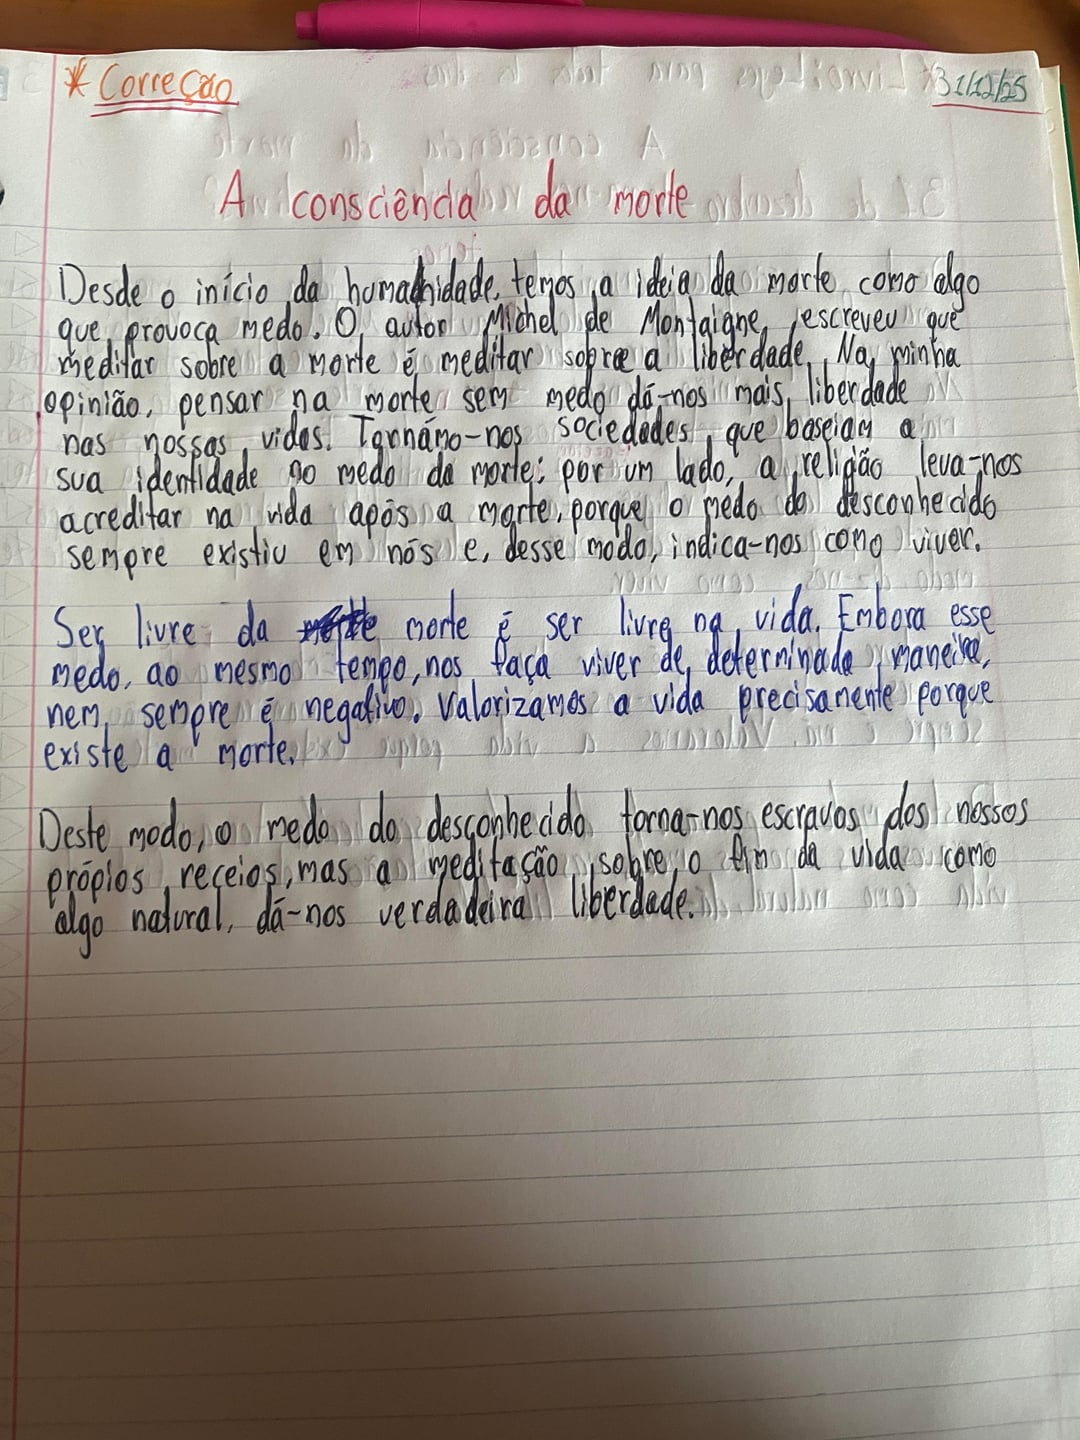 * Correção
31/12/25
A consciência da morte
Desde o início da humanidade, temos a ideia da morte como algo
que provoca medo. O autor Michel de Montaigne, escreveu que
meditar sobre a morte é meditar sobre a liberdade. Na minha
opinião, pensar na morte sem medo dá-nos mais liberdade
nas nossas vidas. Tornámo-nos sociedades, que baseiam a
sua identidade no medo da morte: por um lado, a religião leva-nos
acreditar na vida após a morte, porque o medo do desconhecido
sempre existiu em nós e, desse modo, indica-nos como viver.
Ser livre da morte é ser livre na vida. Embora esse
medo, ao mesmo tempo, nos faça viver de determinada maneira,
nem sempre é negativo. Valorizamos a vida precisamente porque
existe a morte.
Deste modo, o medo do desconhecido torna-nos escravos dos nossos
própios receios, mas a meditação sobre o fim da vida como
algo natural, dá-nos verdadeira liberdade.